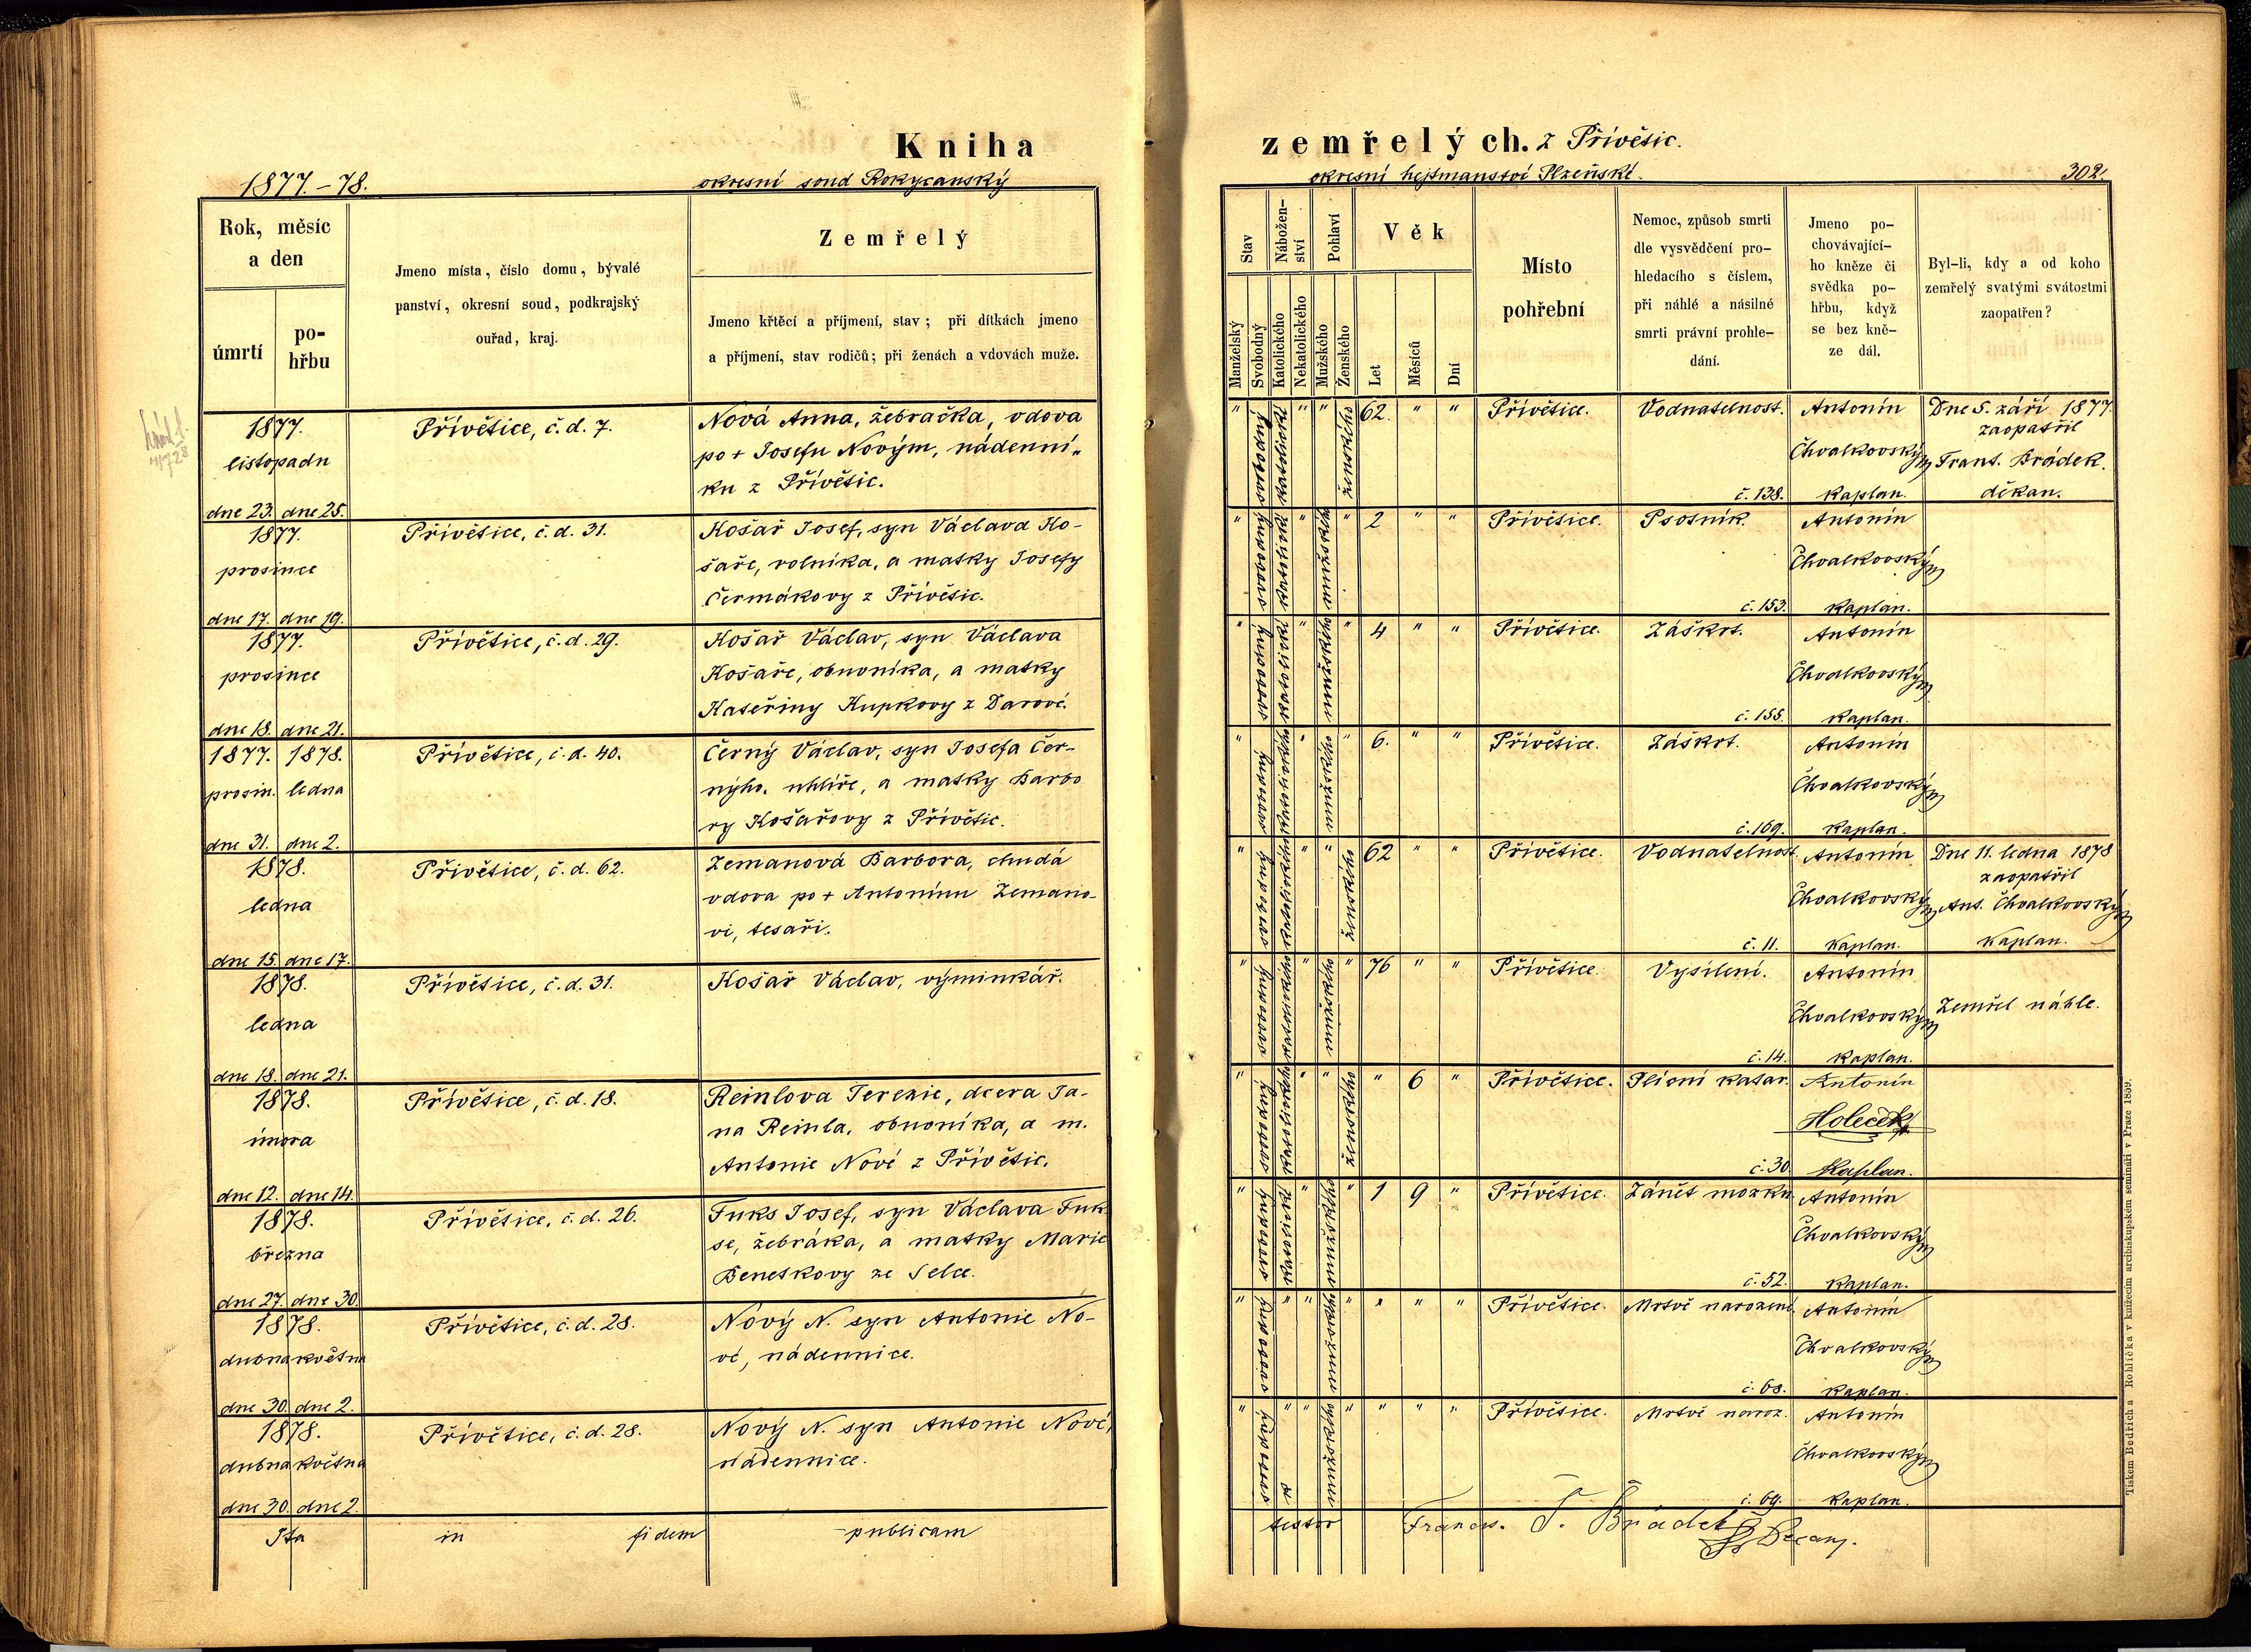 Kniha
1877.-78.
okresní soud Rokycanský
Rok, měsíc
a den
úmrtí
po-
hřbu
Jmeno místa, číslo domu, bývalé
panství, okresní soud, podkrajský
ouřad, kraj.
Zemřelý
Jmeno křtěcí a příjmení, stav; při dítkách jmeno
a příjmení, stav rodičů; při ženách a vdovách muže.
1877.
listopadu
dne 23. dne 25.
Přívětice, č. d. 7.
Nová Anna, žebračka, vdova
po + Josefu Novým, nádenní„
ku z Přívětic.
1877.
prosince
dne 17. dne 19.
Přívětice, č. d. 31.
Košař Josef, syn Václava Ko-
šaře, rolníka, a matky Josefy
Čermákovy z Přívětic.
1877.
prosince
dne 18. dne 21.
Přívětice, č. d. 29.
Košař Václav, syn Václava
Košaře, obuvníka, a matky
Kateřiny Kupkovy z Darové.
1877. 1878.
prosin. ledna
dne 31. dne 2.
Přívětice, č. d. 40.
Černý Václav, syn Josefa Čer-
nýho, uhlíře, a matky Barbo
ry Košařovy z Přívětic.
1878.
ledna
dne 15. dne 17.
Přívětice, č. d. 62.
Zemanová Barbora, chudá
vdova po + Antonínu Zemano-
vi, tesaři.
1878.
ledna
dne 18. dne 21.
Přívětice, č. d. 31.
Košař Václav, výminkář.
1878.
února
dne 12. dne 14.
Přívětice, č. d. 18.
Reinlova Terezie, dcera Ja-
na Reinla, obuvníka, a m.
Antonie Nové z Přívětic.
1878.
března
dne 27. dne 30.
Přívětice, č. d. 26.
Fuks Josef, syn Václava Fuk
se, žebráka, a matky Marie
Beneškovy ze Selce.
1878.
dubna května
dne 30. dne 2.
Přívětice, č. d. 28.
Nový N. syn Antonie No-
vé, nádennice.
1878.
dubna května
dne 30. dne 2.
Přívětice, č. d. 28.
Nový N. syn Antonie Nové,
nádennice.
Ita in fidem publicam
zemřelých. z Přívětic.
okresní hejtmanství Plzeňské.
302.
Stav
Nábožen-
ství
Pohlaví
Věk
Manželský
Svobodný
Katolického
Nekatolického
Mužského
Ženského
Let
Měsíců
Dní
Místo
pohřební
Nemoc, způsob smrti
dle vysvědčení pro-
hledacího s číslem,
při náhlé a násilné
smrti právní prohle-
dání.
Jmeno po-
chovávající-
ho kněze či
svědka po-
hřbu, když
se bez kně-
ze dál.
Byl-li, kdy a od koho
zemřelý svatými svátostmi
zaopatřen?
" svobodný katolické " " ženského 62. " " Přívětice. Vodnatelnost.
č. 138.
Antonín
Chvalkovský
kaplan.
Dne 5. září 1877
zaopatřil
Frant. Brádek.
děkan.
" svobodný katolické " mužského " 2 " " Přívětice. Psotník.
č. 153.
Antonín
Chvalkovský
kaplan.
" svobodný katolické " mužského " 4 " " Přívětice. Záškrt.
č. 155.
Antonín
Chvalkovský
kaplan.
" svobodný katolického " mužského " 6. " " Přívětice. Záškrt.
č. 169.
Antonín
Chvalkovský
kaplan.
" svobodný katolického " " ženského 62 " " Přívětice. Vodnatelnost
č. 11.
Antonín
Chvalkovský
kaplan.
Dne 11. ledna 1878
zaopatřil
Ant. Chvalkovský
kaplan.
" svobodný katolického " mužského " 76 " " Přívětice. Vysílení.
č. 14.
Antonín
Chvalkovský
kaplan.
Zemřel náhle.
" svobodný katolického " " ženského " 6 " Přívětice. Plicní katar.
č. 30
Antonín
Holeček
Kaplan.
" svobodný katolické " mužského " 1 9 " Přívětice. Zánět mozku.
č. 52.
Antonín
Chvalkovský
kaplan.
" svobodný " " mužského " " " " Přívětice. Mrtvě narozené.
č. 68.
Antonín
Chvalkovský
kaplan.
" svobodný " " mužského " " " " Přívětice. Mrtvě naroz.
č. 69.
Antonín
Chvalkovský
kaplan.
testor Francis. T. Brádek Decan.
Tiskem Bedřicha Rohlíčka v knížecím arcibiskupském semináři v Praze 1859.